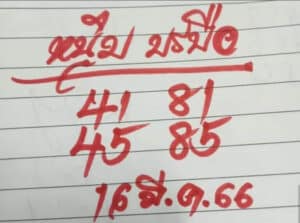 หนุ่ม บรบือ
41 81
45 85
16 มี.ค.66